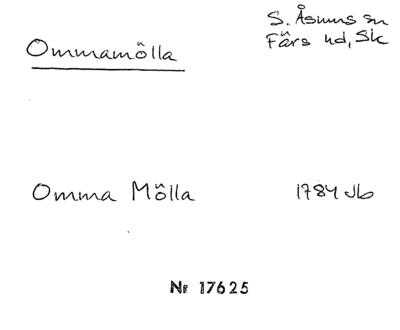 Ommamölla
S. Åsums sn
Färs hd, Sk
Omma Mölla
1784 Jb
Nr 17625